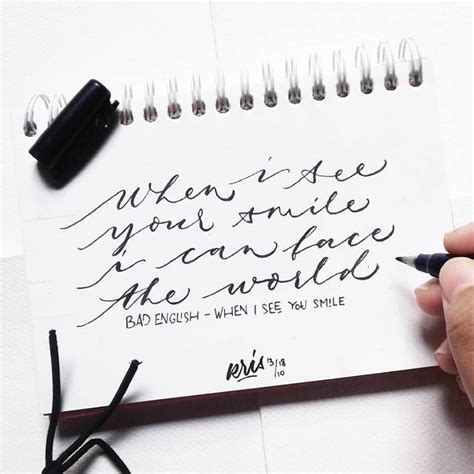 When i see
your smile
i can face
the world
BAD ENGLISH – WHEN I SEE YOU SMILE
kris 13/18
10